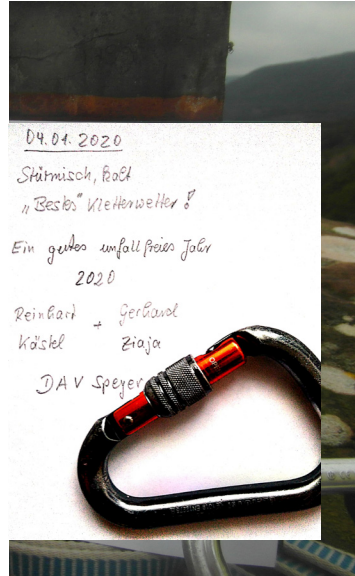 04.01.2020
Stürmisch, kalt
„Bestes" Kletterwetter!
Ein gutes unfallfreies Jahr
2020
Reinhard + Gerhard
Kästel Ziaja
DAV Speyer